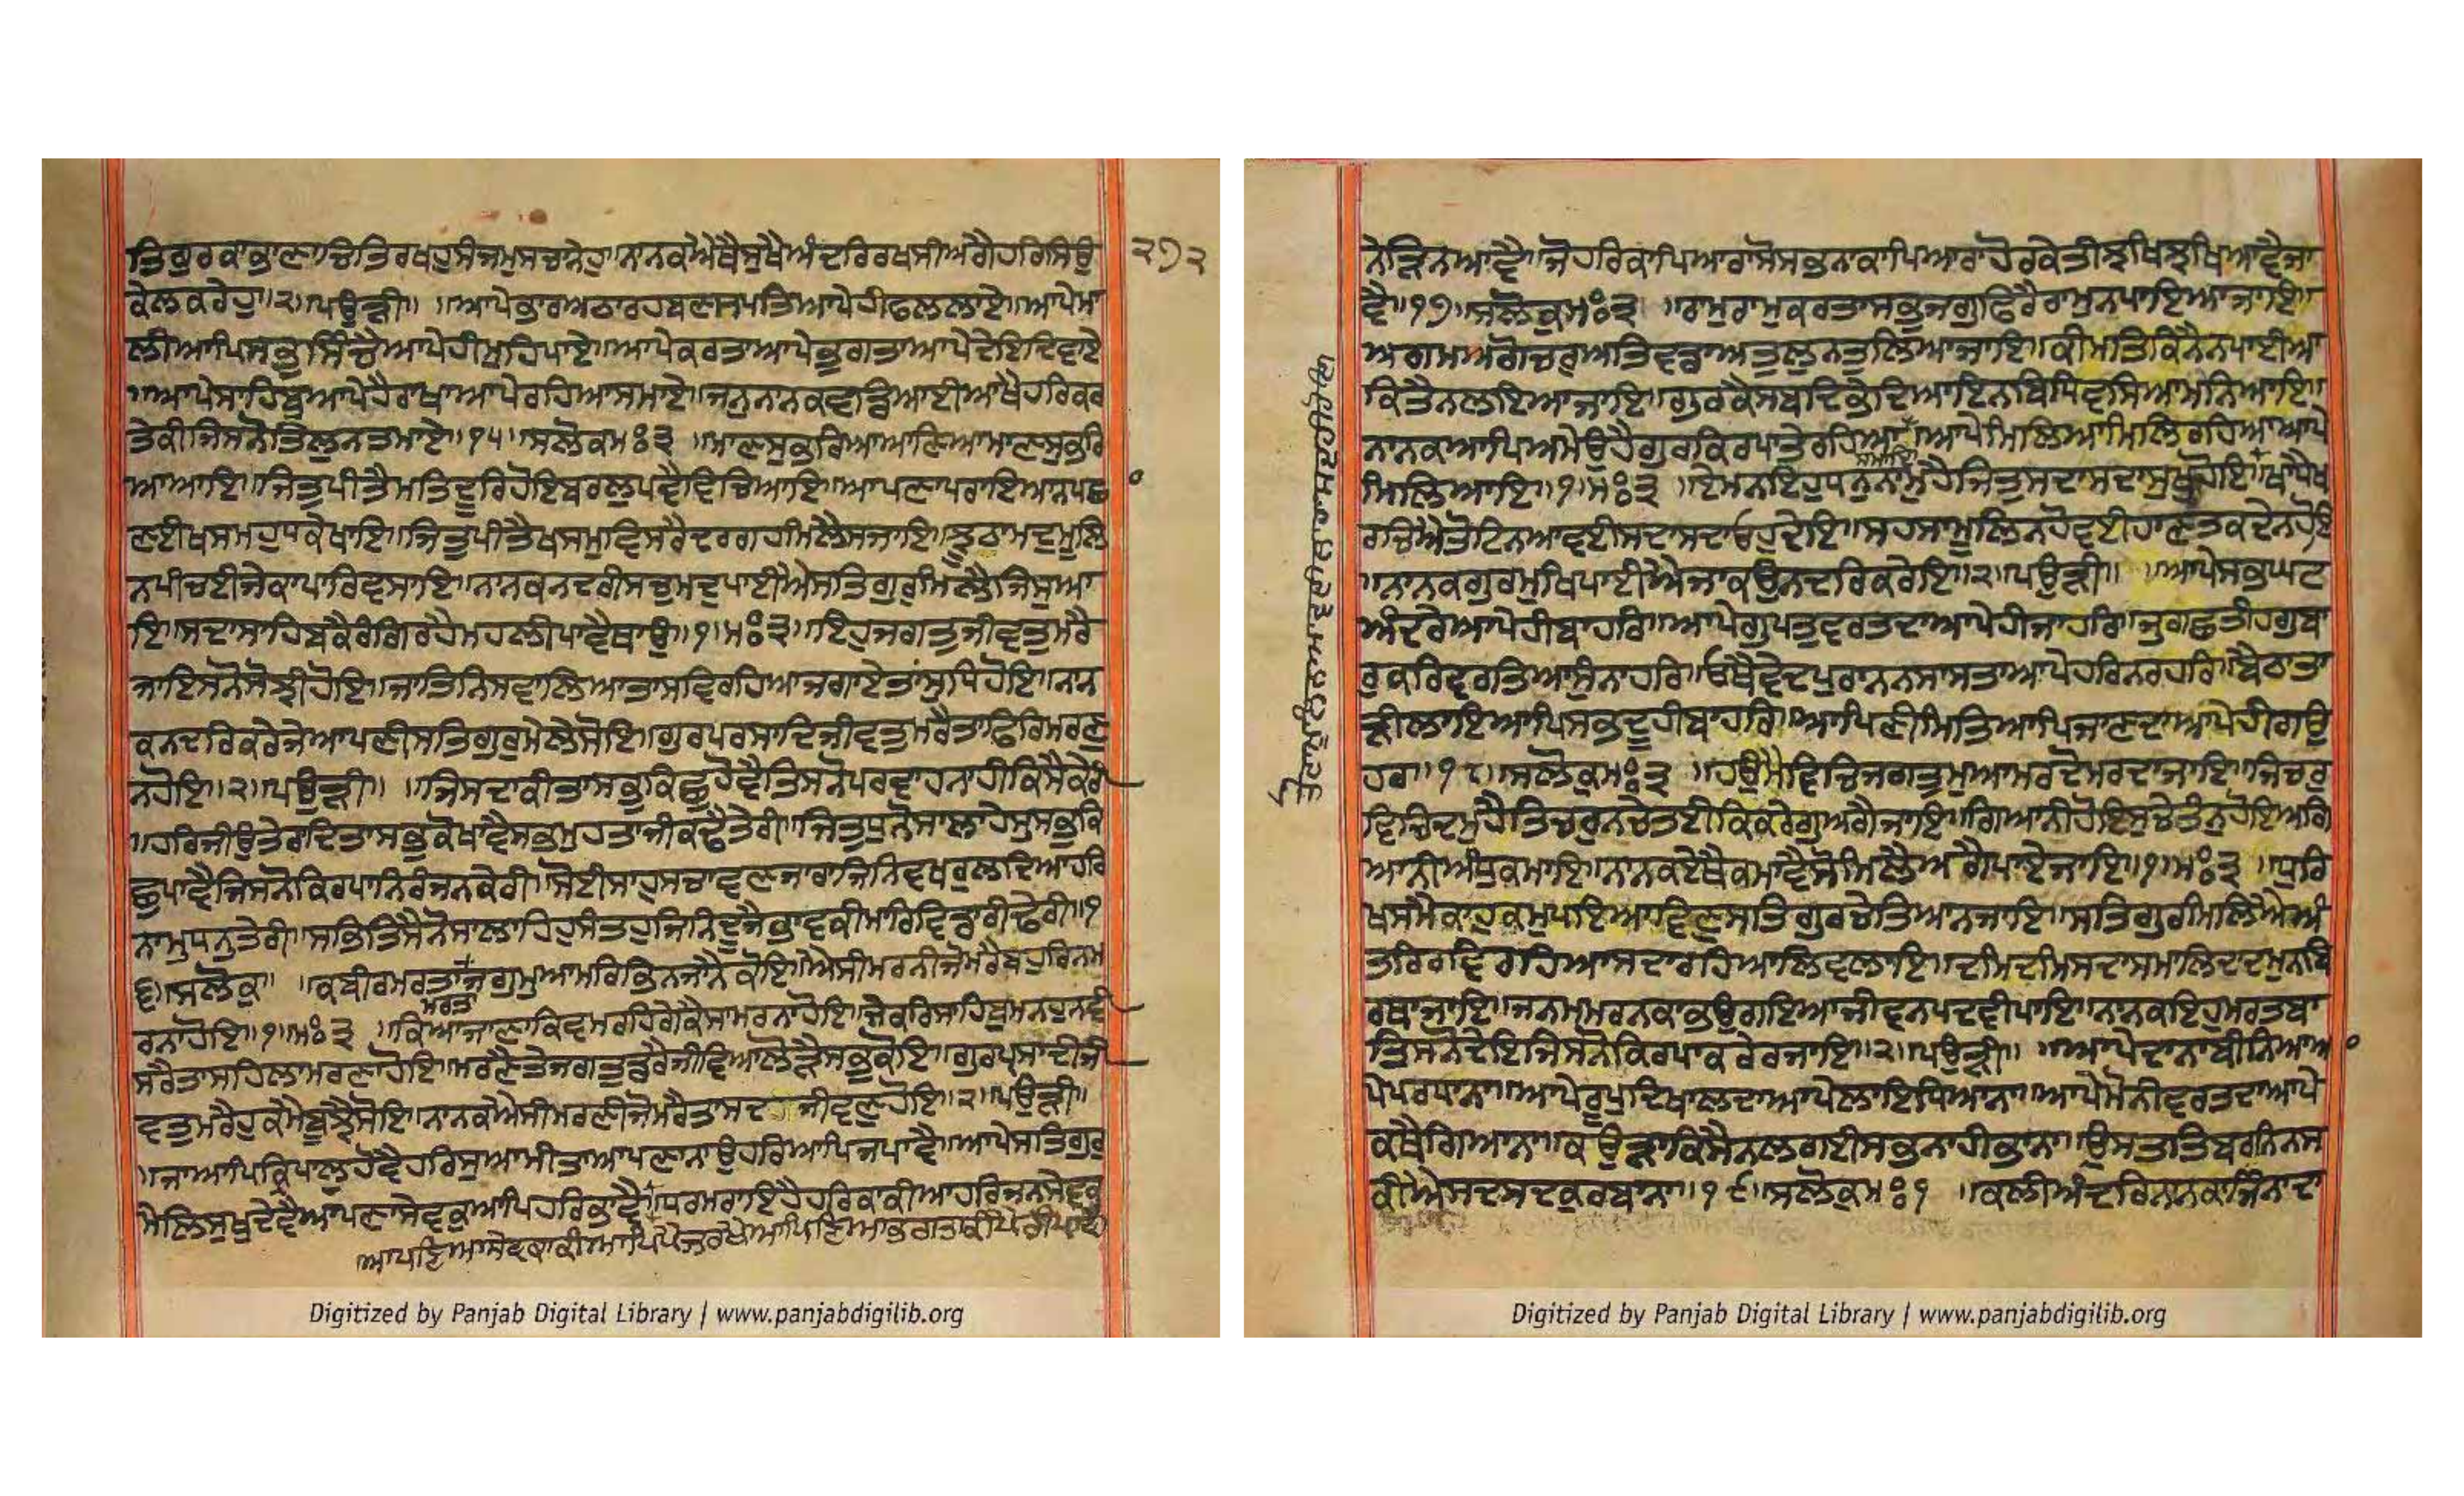 ਤਿਗੁਰਕਾਭਾਣਾਚਿਤਿਰਖਹੁਸੰਜਮੁਸਚਾਨੇਹੁ॥ਨਾਨਕਐਥੈਸੁਖੈਅੰਦਰਿਰਖਸੀਅਗੈਹਰਿਸਿਉ
ਕੇਲਕਰੇਹੁ॥੨॥ਪਉੜੀ॥ ॥ਆਪੇਭਾਰਅਠਾਰਹਬਣਸਪਤਿਆਪੇਹੀਫਲਲਾਏ॥ਆਪੇਮਾ
ਲੀਆਪਿਸਭੁਸਿੰਚੈਆਪੇਹੀਮੁਹਿਪਾਏ॥ਆਪੇਕਰਤਾਆਪੇਭੁਗਤਾਆਪੇਦੇਇਦਿਵਾਏ
॥ਆਪੇਸਾਹਿਬੁਆਪੇਹੈਰਾਖਾਆਪੇਰਹਿਆਸਮਾਏ॥ਜਨੁਨਾਨਕਵਡਿਆਈਆਖੈਹਰਿਕਰ
ਤੇਕੀਜਿਸਨੋਤਿਲੁਨਤਮਾਏ॥੧੫॥ਸਲੋਕਮਃ੩ ॥ਮਾਣਸੁਭਰਿਆਆਣਿਆਮਾਣਸੁਭਰਿ
ਆਆਇ॥ਜਿਤੁਪੀਤੈਮਤਿਦੂਰਿਹੋਇਬਰਲੁਪਵੈਵਿਚਿਆਇ॥ਆਪਣਾਪਰਾਇਆਨਪਛ
ਣਈਖਸਮਹੁਧਕੇਖਾਇ॥ਜਿਤੁਪੀਤੈਖਸਮੁਵਿਸਰੈਦਰਗਹੀਮਲੈਸਜਾਇ॥ਝੂਠਾਮਦੁਮੂਲਿ
ਨਪੀਚਈਜੇਕਾਪਾਰਿਵਸਾਇ॥ਨਾਨਕਨਦਰੀਸਚੁਮਦੁਪਾਈਐਸਤਿਗੁਰੁਮਿਲੈਜਿਸੁਆ
ਇ॥ਸਦਾਸਾਹਿਬਕੈਰੰਗਿਰਹੈਮਹਲੀਪਾਵੈਥਾਉ॥੧॥ਮਃ੩॥ਇਹੁਜਗਤੁਜੀਵਤੁਮਰੈ
ਜਾਇਸਨੋਸੋਝੀਹੋਇ॥ਜਾਤਿਨਿਸਵਾਲਿਆਤਾਸਵਿਰਹਿਆਜਗਾਏਤਾਂਸੁਧਿਹੋਇ॥ਨਾਨ
ਕਨਦਰਿਕਰੇਜੇਆਪਣੀਸਤਿਗੁਰੁਮੇਲੇਸੋਇ॥ਗੁਰਪਰਸਾਦਿਜੀਵਤੁਮਰੈਤਾਫਿਰਿਮਰਣੁ
ਨਹੋਇ॥੨॥ਪਉੜੀ॥ ॥ਜਿਸਦਾਕੀਤਾਸਭੁਕਿਛੁਹੋਵੈਤਿਸਨੋਪਰਵਾਹਨਾਹੀਕਿਸੈਕੇਰੀ
॥ਹਰਿਜੀਉਤੇਰਾਦਿਤਾਸਭੁਕੋਖਾਵੈਸਭਮੁਹਤਾਜੀਕਢੈਤੇਰੀ॥ਜਿਤੁਧੁਨੋਸਾਲਾਹੇਸੁਸਭੁਕਿ
ਛੁਪਾਵੈਜਿਸਨੋਕਿਰਪਾਨਿਰੰਜਨਕੇਰੀ॥ਸੋਈਸਾਹੁਸਚਾਵਣਜਾਰਾਜਿਨਿਵਖਰੁਲਦਿਆਹਰਿ
ਨਾਮੁਧਨੁਤੇਰੀ॥ਸਭਿਤਿਸੈਨੋਸਾਲਾਹਿਹੁਸੰਤਹੁਜਿਨਿਦੂਜੈਭਾਵਕੀਮਾਰਿਵਿਡਾਰੀਢੇਰੀ॥੧
੬॥ਸਲੋਕੁ॥ ॥ਕਬੀਰਮਰਤਾਜਗੁਮੁਆਮਰਿਭਿਨਜਾਨੈਕੋਇ॥ਐਸੀਮਰਨੀਜੋਮਰੈਬਹੁਰਿਨਮ
ਮਰਤਾ
ਰਨਾਹੋਇ॥੧॥ਮਃ੩ ॥ਕਿਆਜਾਣਾਕਿਵਮਰਹਿਗੇਕੈਸਾਮਰਨਾਹੋਇ॥ਜੇਕਰਿਸਾਹਿਬੁਮਨਹੁਨਵੀ
ਸਰੈਤਾਸਹਿਲਾਮਰਣਾਹੋਇ॥ਮਰਣੈਤੇਜਗਤੁਡਰੈਜੀਵਿਆਲੋੜੈਸਭੁਕੋਇ॥ਗੁਰਪ੍ਰਸਾਦੀਜੀ
ਵਤੁਮਰੈਹੁਕਮੈਬੂਝੈਸੋਇ॥ਨਾਨਕਐਸੀਮਰਣੀਜੋਮਰੈਤਾਸਦ ਜੀਵਣੁਹੋਇ॥੨॥ਪਉੜੀ॥
॥ਜਾਆਪਿਕ੍ਰਿਪਾਲੁਹੋਵੈਹਰਿਸੁਆਮੀਤਾਆਪਣਾਨਾਉਹਰਿਆਪਿਜਪਾਵੈ॥ਆਪੇਸਤਿਗੁਰੁ
ਮੇਲਿਸੁਖੁਦੇਵੈਆਪਣਾਸੇਵਕੁਆਪਿਹਰਿਭਾਵੈ॥ਧਰਮਰਾਇਹੈਹਰਿਕਾਕੀਆਹਰਿਜਨਸੇਵਕ
॥ਆਪਣਿਆਸੇਵਕਾਕੀਆਪਿਪੈਜਰਖੈਆਪਣਿਆਭਗਤਾਕੀਪੈਰੀਪਾਵੈ
੨੭੨
ਨੇੜਿਨਆਵੈ॥ਜੋਹਰਿਕਾਪਿਆਰਾਸੋਸਭਨਾਕਾਪਿਆਰਾਹੋਰਕੇਤੀਝਖਿਝਖਿਆਵੈਜਾ
ਵੈ॥੧੭॥ਸਲੋਕੁਮਃ੩ ॥ਰਾਮੁਰਾਮੁਕਰਤਾਸਭੁਜਗੁਫਿਰੈਰਾਮੁਨਪਾਇਆਜਾਇ॥
ਅਗਮਅਗੋਚਰੁਅਤਿਵਡਾਅਤੁਲੁਨਤੁਲਿਆਜਾਇ॥ਕੀਮਤਿਕਿਨੈਨਪਾਈਆ
ਕਿਤੈਨਲਇਆਜਾਇ॥ਗੁਰਕੈਸਬਦਿਭੇਦਿਆਇਨਬਿਧਿਵਸਿਆਮਨਿਆਇ॥
ਨਾਨਕਆਪਿਅਮੇਉਹੈਗੁਰਕਿਰਪਾਤੇਰਹਿਆ॥ਆਪੇਮਿਲਿਆਮਿਲਿਰਹਿਆਆਪੇ
ਸਮਾਇ
ਮਿਲਿਆਇ॥੧॥ਮਃ੩ ॥ਏਮਨਇਹੁਧਨੁਨਾਮੁਹੈਜਿਤੁਸਦਾਸਦਾਸੁਖੁਹੋਇ॥ਖਾਧੈਖ
ਰਚਿਐਤੋਟਿਨਆਵਈਸਦਾਸਦਾਓਹੁਦੇਇ॥ਸਹਸਾਮੂਲਿਨਹੋਵਈਹਾਣਤਕਦੇਨਹੋਇ
॥ਨਾਨਕਗੁਰਮੁਖਿਪਾਈਐਜਾਕਉਨਦਰਿਕਰੇਇ॥੨॥ਪਉੜੀ॥ ॥ਆਪੇਸਭਘਟ
ਅੰਦਰੇਆਪੇਹੀਬਾਹਰਿ॥ਆਪੇਗੁਪਤੁਵਰਤਦਾਆਪੇਹੀਜਾਹਰਿ॥ਜੁਗਛਤੀਹਗੁਬਾ
ਰੁਕਰਿਵਰਤਿਆਸੁੰਨਾਹਰਿ॥ਓਥੈਵੇਦਪੁਰਾਨਨਸਾਸਤਾਆਪੇਹਰਿਨਰਹਰਿ॥ਬੈਠਾਤਾ
ੜੀਲਾਇਆਪਿਸਭਦੂਹੀਬਾਹਰਿ॥ਆਪਣੀਮਿਤਿਆਪਿਜਾਣਦਾਆਪੇਹੀਗਉ
ਹਰਾ॥੧੮॥ਸਲੋਕੁਮਃ੩ ॥ਹਉਮੈਵਿਚਿਜਗਤੁਮੁਆਮਰਦੋਮਰਦਾਜਾਇ॥ਜਿਚਰੁ
ਵਿਚਿਦਮੁਹੈਤਿਚਰੁਨਚੇਤਈਕਿਕਰੇਗੁਅਗੈਜਾਇ॥ਗਿਆਨੀਹੋਇਸੁਚੇਤੰਨੁਹੋਇਅਗਿ
ਆਨੀਅੰਧੁਕਮਾਇ॥ਨਾਨਕਏਥੈਕਮਾਵੈਸੋਮਿਲੈਅਗੈਪਾਏਜਾਇ॥੧॥ਮਃ੩ ॥ਧੁਰਿ
ਖਸਮੈਕਾਹੁਕਮੁਪਇਆਵਿਣੁਸਤਿਗੁਰਚੇਤਿਆਨਜਾਇ॥ਸਤਿਗੁਰਿਮਿਲਿਐਅੰ
ਤਰਿਰਵਿਰਹਿਆਸਦਾਰਹਿਆਲਿਵਲਾਇ॥ਦਮਿਦਮਿਸਦਾਸਮਾਲਿਦਦਮੁਨਬਿ
ਰਥਾਜਾਇ॥ਜਨਮਮਰਨਕਾਭਉਗਇਆਜੀਵਨਪਦਵੀਪਾਇ॥ਨਾਨਕਇਹੁਮਰਤਬਾ
ਤਿਸਨੋਦੇਇਜਿਸਨੋਕਿਰਪਾਕਰੇਰਜਾਇ॥੨॥ਪਉੜੀ॥ ॥ਆਪੇਦਾਨਾਬੀਨਿਆਆ
ਪੇਪਰਧਾਨਾ॥ਆਪੇਰੂਪੁਦਿਖਾਲਦਾਆਪੇਲਾਇਧਿਆਨਾ॥ਆਪੇਮੋਨੀਵਰਤਦਾਆਪੇ
ਕਥੈਗਿਆਨਾ॥ਕਉੜਾਕਿਸੈਨਲਗਈਸਭਨਾਹੀਭਾਨਾ॥ਉਸਤਤਿਬਰਨਿਨਸ
ਕੀਐਸਦਸਦਕੁਰਬਾਨਾ॥੧੯॥ਸਲੋਕੁਮਃ੧ ॥ਕਲੀਅੰਦਰਿਨਾਨਕਾਜਿੰਨਾਦਾ
Digitized by Panjab Digital Library | www.panjabdigilib.org
Digitized by Panjab Digital Library | www.panjabdigilib.org